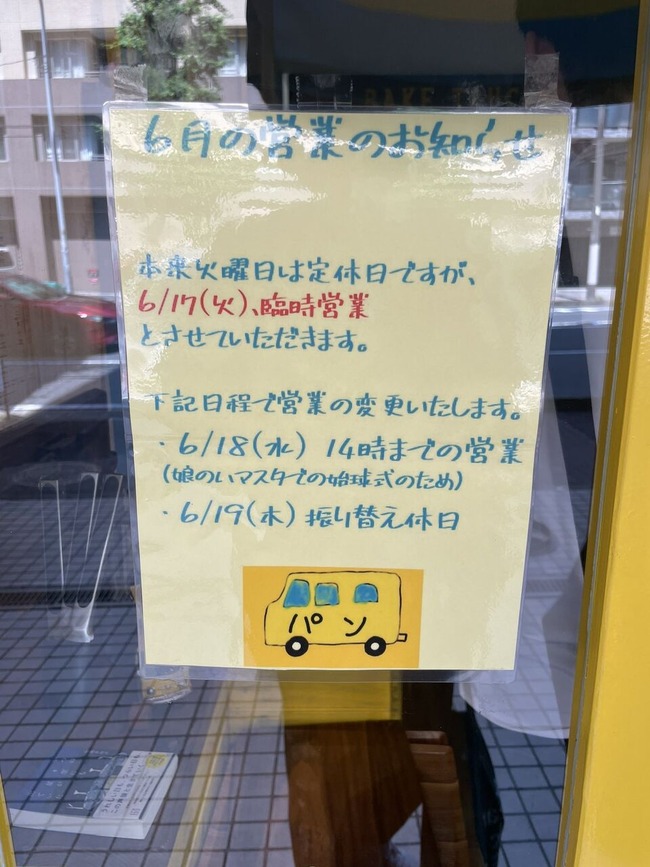 6月の営業のお知らせ
本来火曜日は定休日ですが、
6/17(火)、臨時営業
とさせていただきます。
下記日程で営業の変更いたします。
・6/18(水) 14時までの営業
(娘のハマスタでの始球式のため)
・6/19(木) 振り替え休日
パン